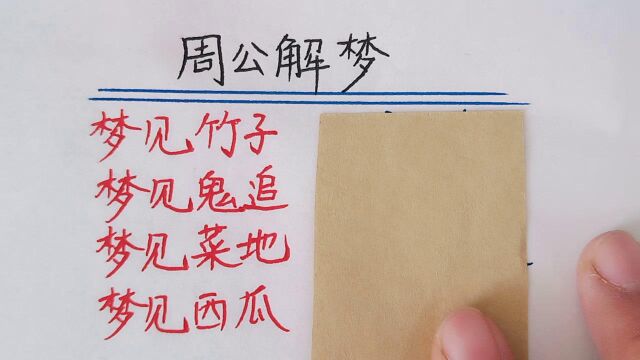 周公解梦
梦见竹子
梦见鬼追
梦见菜地
梦见西瓜